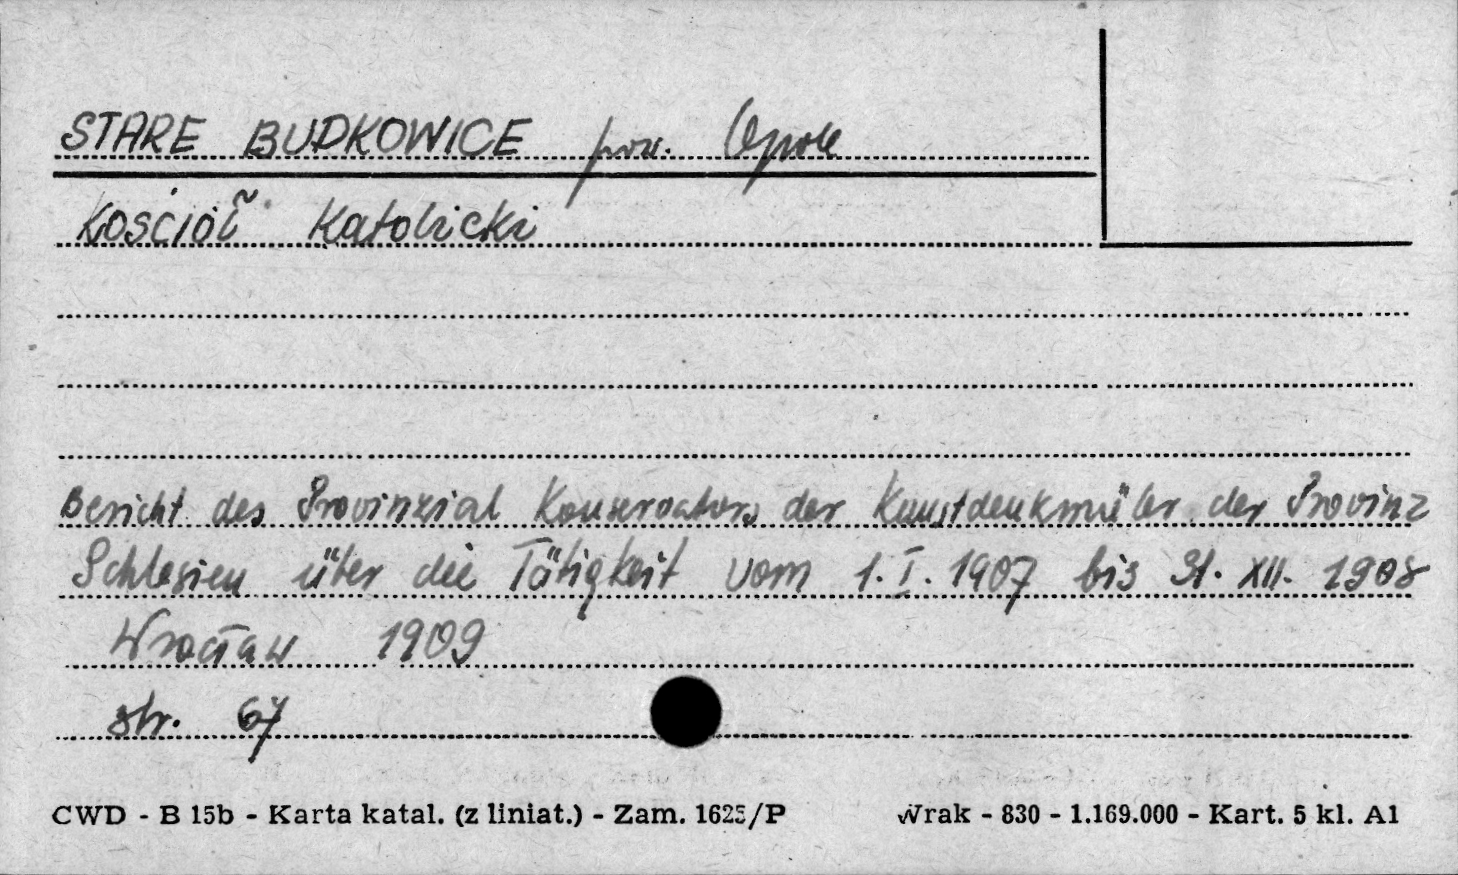 STARE BUDKOWICE pow. Opole
Kościół Katolicki
Bericht des Provinzial Konservators der Kunstdenkmäler der Provinz
Schlesien über die Tätigkeit vom 1. I. 1907 bis 31. XII. 1908
Wrocław 1909
str. 67
CWD - B 15b - Karta katal. (z liniat.) - Zam. 1625/P
Wrak - 830 - 1.169.000 - Kart. 5 kl. A1